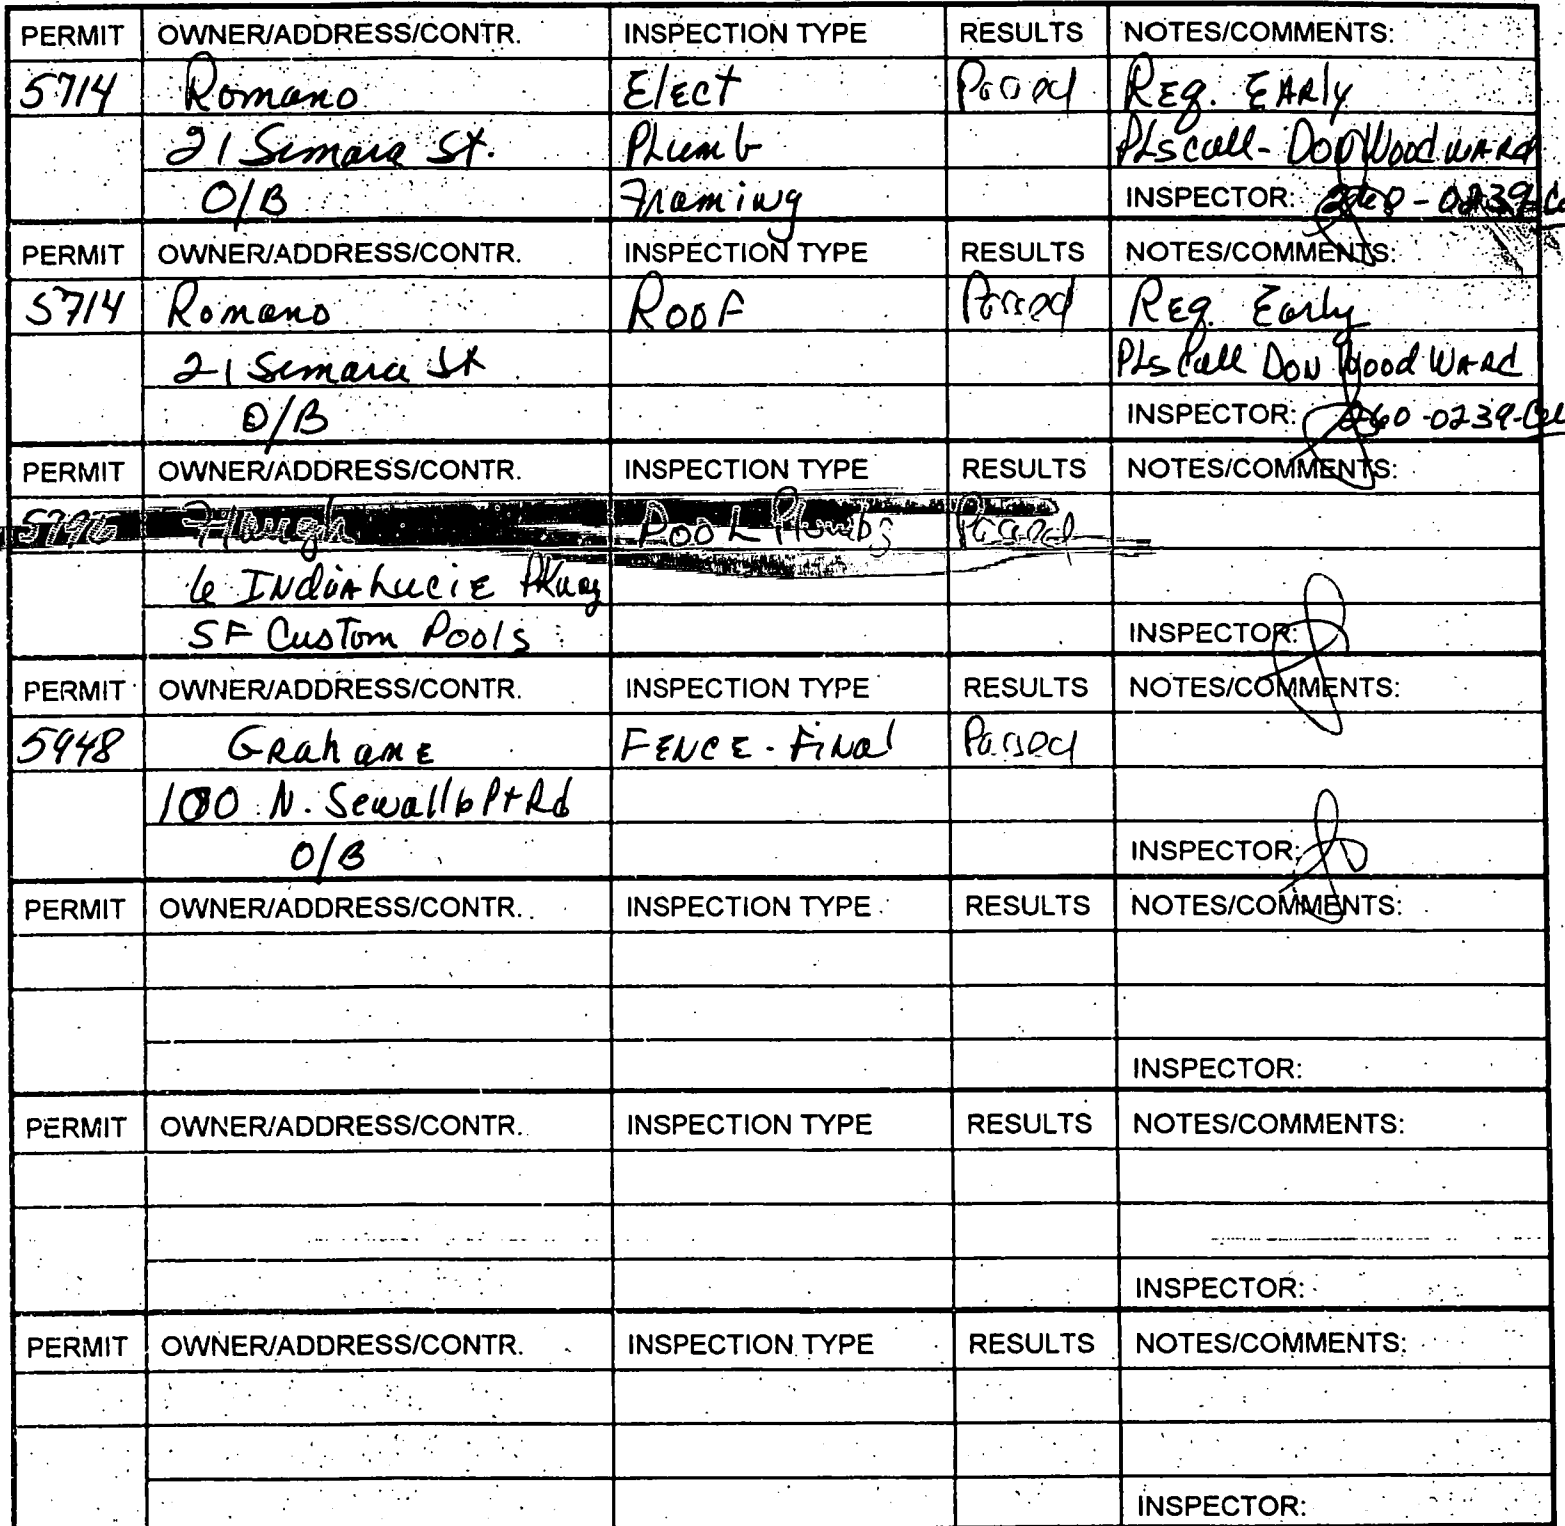 PERMIT OWNER/ADDRESS/CONTR. INSPECTION TYPE RESULTS NOTES/COMMENTS:
5714 Romano Elect Passed Req. EARly
21 Simara St. Plumb Pls call - Don Wood WARd
O/B Framing INSPECTOR: 260-0239-Ce
PERMIT OWNER/ADDRESS/CONTR. INSPECTION TYPE RESULTS NOTES/COMMENTS:
5714 Romano Roof Passed Req. Early
21 Simara St Pls Call Don Wood WARd
O/B INSPECTOR: 260-0239-Cel
PERMIT OWNER/ADDRESS/CONTR. INSPECTION TYPE RESULTS NOTES/COMMENTS:
Pool Plumbg Passed
6 INdiaLucie Pkwy
SF Custom Pools INSPECTOR:
PERMIT OWNER/ADDRESS/CONTR. INSPECTION TYPE RESULTS NOTES/COMMENTS:
5948 Grahame FENCE - FiNal Passed
100 N. Sewalls Pt Rd
O/B INSPECTOR:
PERMIT OWNER/ADDRESS/CONTR. INSPECTION TYPE RESULTS NOTES/COMMENTS:
INSPECTOR:
PERMIT OWNER/ADDRESS/CONTR. INSPECTION TYPE RESULTS NOTES/COMMENTS:
INSPECTOR:
PERMIT OWNER/ADDRESS/CONTR. INSPECTION TYPE RESULTS NOTES/COMMENTS:
INSPECTOR: